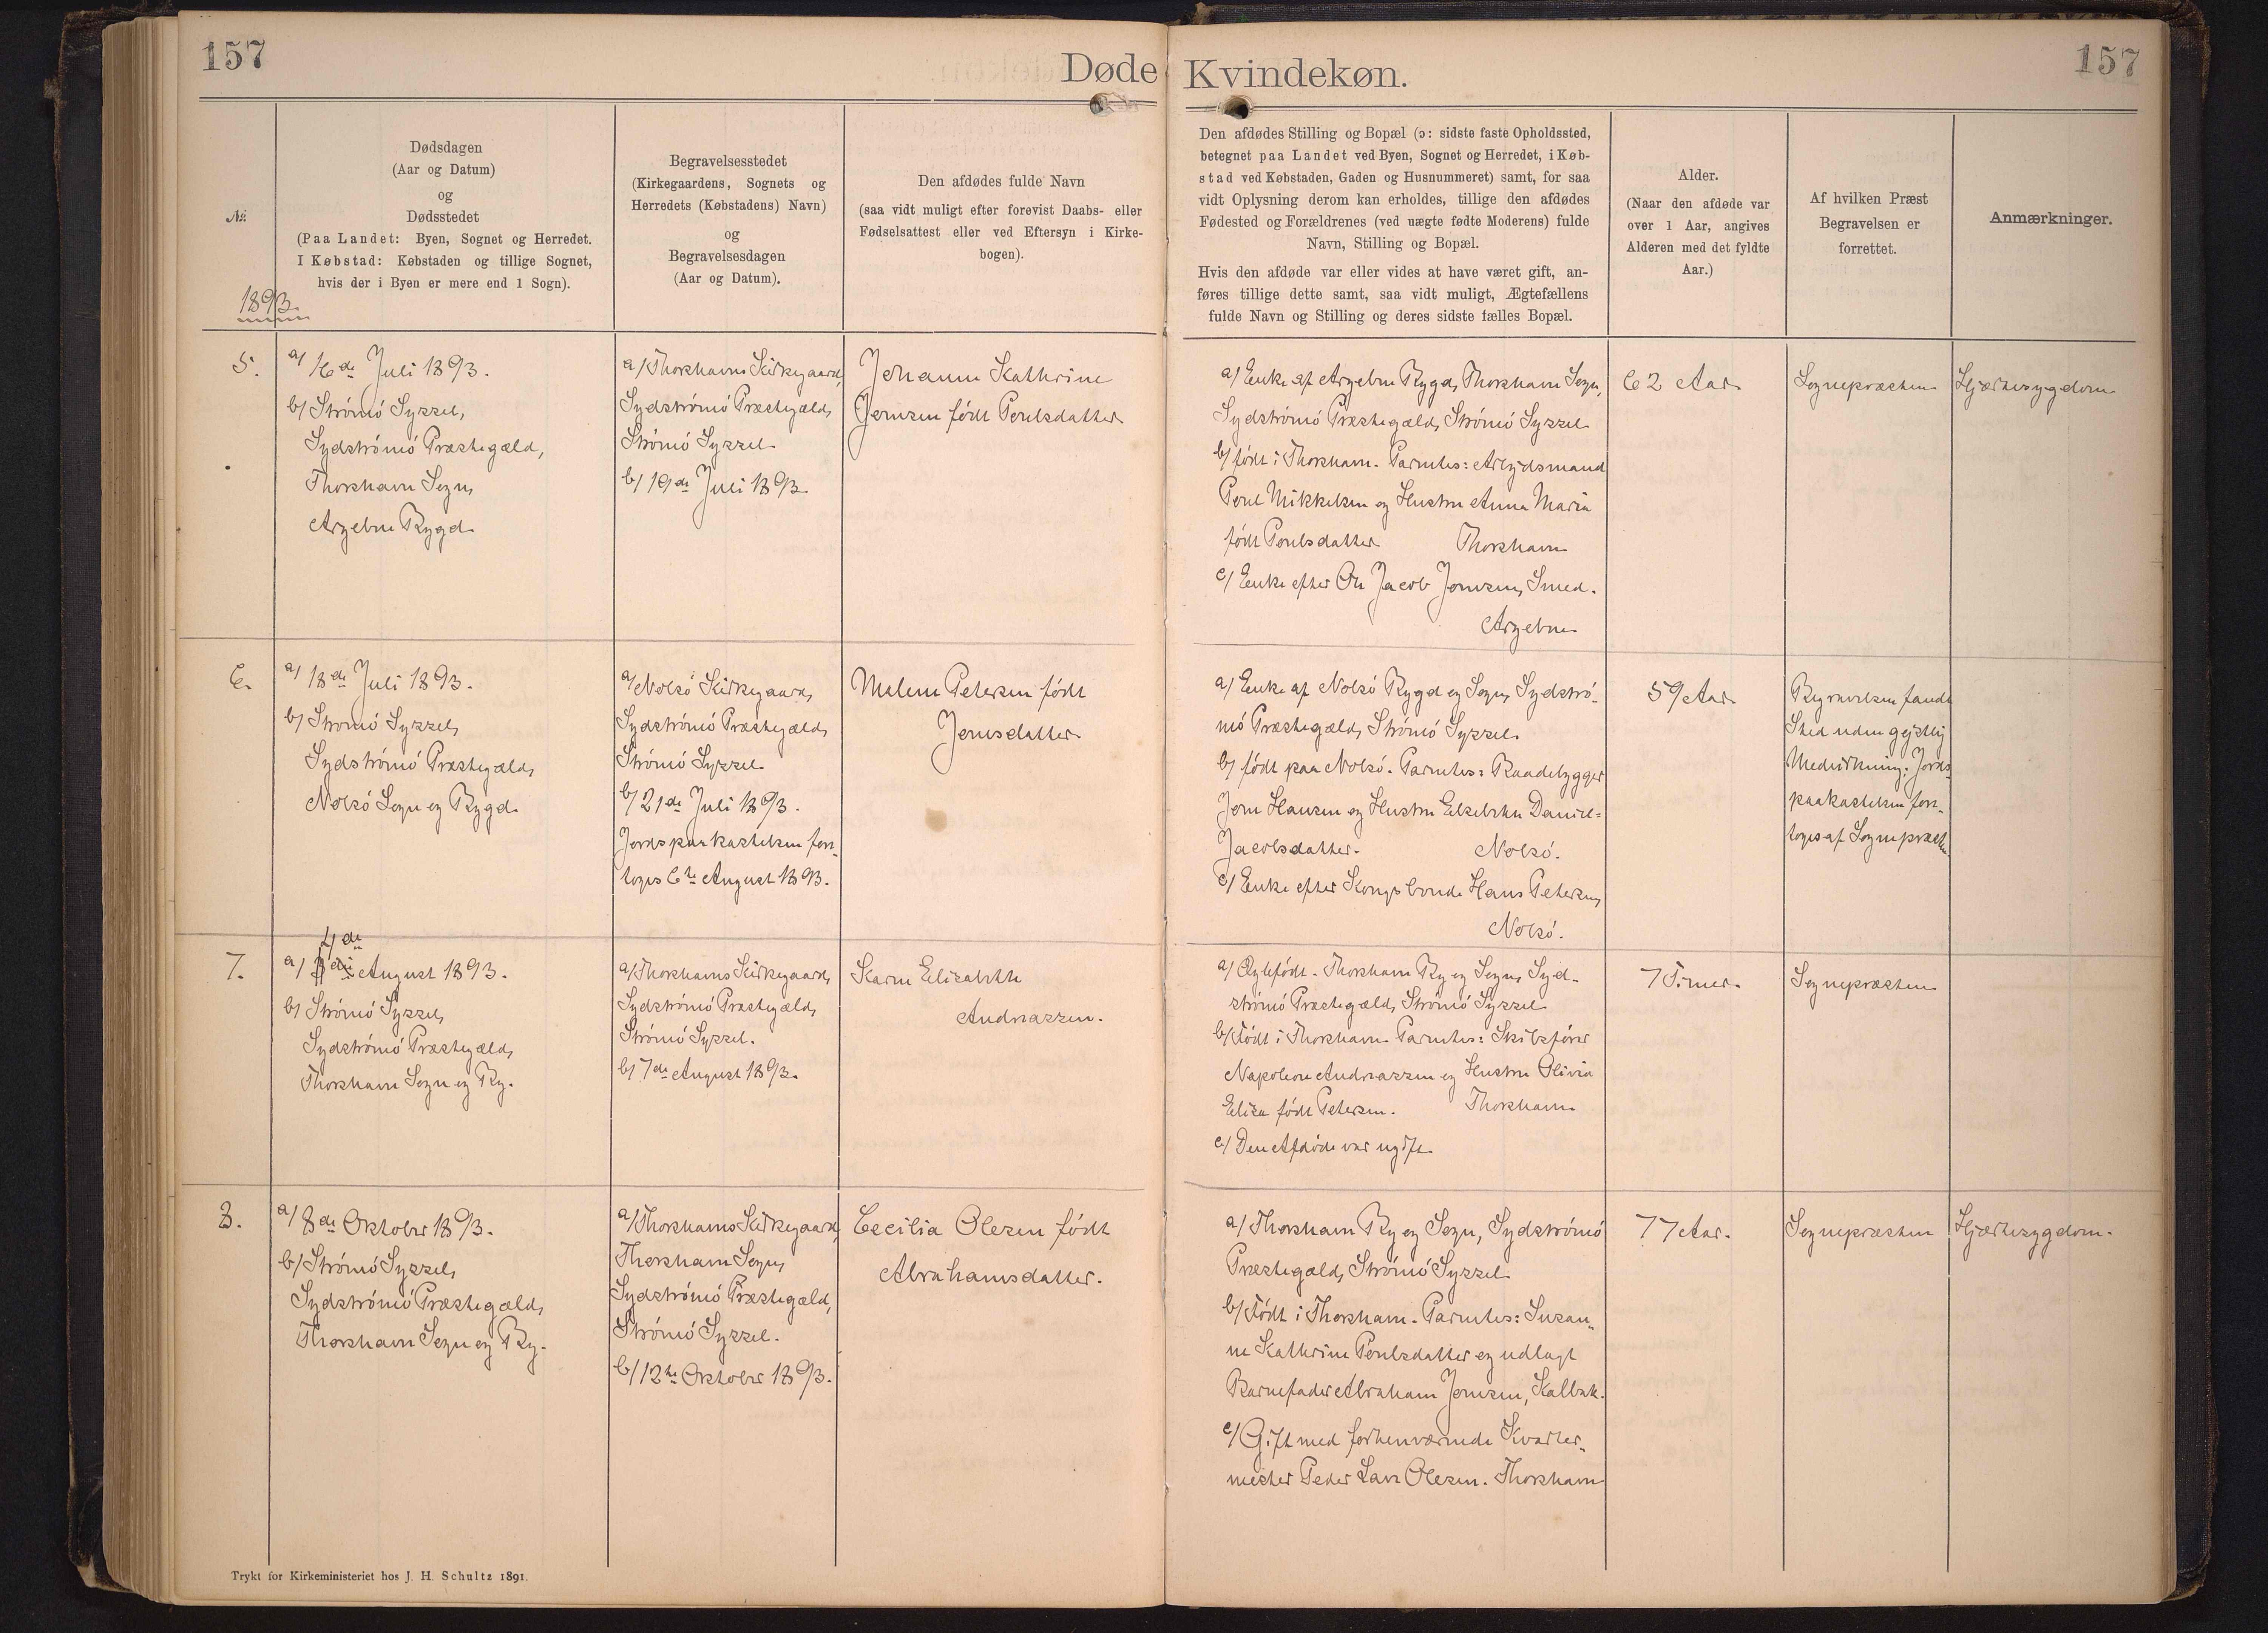 157
Døde Kvindekøn.
157
№
Dødsdagen
(Aar og Datum)
og
Dødsstedet
(Paa Landet: Byen, Sognet og Herredet.
I Købstad: Købstaden og tillige Sognet,
hvis der i Byen er mere end 1 Sogn).
Begravelsesstedet
(Kirkegaardens, Sognets og
Herredets (Købstadens) Navn)
og
Begravelsesdagen
(Aar og Datum).
Den afdødes fulde Navn
(saa vidt muligt efter forevist Daabs- eller
Fødselsattest eller ved Eftersyn i Kirke-
bogen).
Den afdødes Stilling og Bopæl (ɔ: sidste faste Opholdssted,
betegnet paa Landet ved Byen, Sognet og Herredet, i Køb-
stad ved Købstaden, Gaden og Husnummeret) samt, for saa
vidt Oplysning derom kan erholdes, tillige den afdødes
Fødested og Forældrenes (ved uægte fødte Moderens) fulde
Navn, Stilling og Bopæl.
Hvis den afdøde var eller vides at have været gift, an-
føres tillige dette samt, saa vidt muligt, Ægtefællens
fulde Navn og Stilling og deres sidste fælles Bopæl.
Alder.
(Naar den afdøde var
over 1 Aar, angives
Alderen med det fyldte
Aar.)
Af hvilken Præst
Begravelsen er
forrettet.
Anmærkninger.
1893.
5.
a/ 16de Juli 1893.
b/ Strømø Syssel,
Sydstrømø Præstegæld,
Thorshavn Sogn,
Argebne Bygd.
a/ Thorshavns Kirkegaard,
Sydstrømø Præstegæld,
Strømø Syssel.
b/ 19de Juli 1893.
Johanne Kathrine
Jensen født Poulsdatter
a/ Enke af Argebne Bygd, Thorshavn Sogn,
Sydstrømø Præstegæld, Strømø Syssel.
b/ født i Thorshavn. Parentes: Arbejdsmand
Poul Mikkelsen og Hustru Anna Maria
født Poulsdatter. Thorshavn.
c/ Enke efter Ole Jacob Joensen, Smed.
Argebne.
62 Aar.
Sognepræsten
Hjertesygdom
6.
a/ 18de Juli 1893.
b/ Strømø Syssel,
Sydstrømø Præstegæld,
Nolsø Sogn og Bygd.
a/ Nolsø Kirkegaard,
Sydstrømø Præstegæld,
Strømø Syssel.
b/ 21de Juli 1893.
Jordspaakastelsen fore-
toges 6te August 1893.
Malene Petersen født
Jensdatter
a/ Enke af Nolsø Bygd og Sogn, Sydstrø-
mø Præstegæld, Strømø Syssel.
b/ født paa Nolsø. Parentes: Baadebygger
Jens Hansen og Hustru Elsebeth Daniel-
Jacobsdatter. Nolsø.
c/ Enke efter Kongsbonde Hans Petersen,
Nolsø.
59 Aar.
Begravelsen fandt
Sted uden gejstlig
Medvirkning; Jords-
paakastelsen fore-
toges af Sognepræsten
7.
4de
a/ August 1893.
b/ Strømø Syssel,
Sydstrømø Præstegæld,
Thorshavn Sogn og By.
a/ Thorshavns Kirkegaard,
Sydstrømø Præstegæld,
Strømø Syssel.
b/ 7de August 1893.
Karen Elisabeth
Andreassen.
a/ Ægtefødt. Thorshavn By og Sogn, Syd-
strømø Præstegæld, Strømø Syssel
b/ Født i Thorshavn. Parentes: Skibsfører
Napoleon Andreassen og Hustru Olivia
Elisa født Petersen. Thorshavn.
c/ Den Afdøde var ugift.
7 Timer
Sognepræsten
8.
a/ 8de Oktober 1893.
b/ Strømø Syssel,
Sydstrømø Præstegæld,
Thorshavn Sogn og By.
a/ Thorshavns Kirkegaard,
Thorshavn Sogn,
Sydstrømø Præstegæld,
Strømø Syssel.
b/ 12te Oktober 1893.
Cecilia Olesen født
Abrahamsdatter.
a/ Thorshavn By og Sogn, Sydstrømø
Præstegæld, Strømø Syssel
b/ Født i Thorshavn. Parentes: Susan-
ne Kathrine Poulsdatter og udlagt
Barnefader Abraham Jensen, Kalbak.
c/ Gift med forhenværende Kvarter-
mester Peder Lars Olesen. Thorshavn
77 Aar.
Sognepræsten
Hjertesygdom.
Trykt for Kirkeministeriet hos J. H. Schultz 1891.